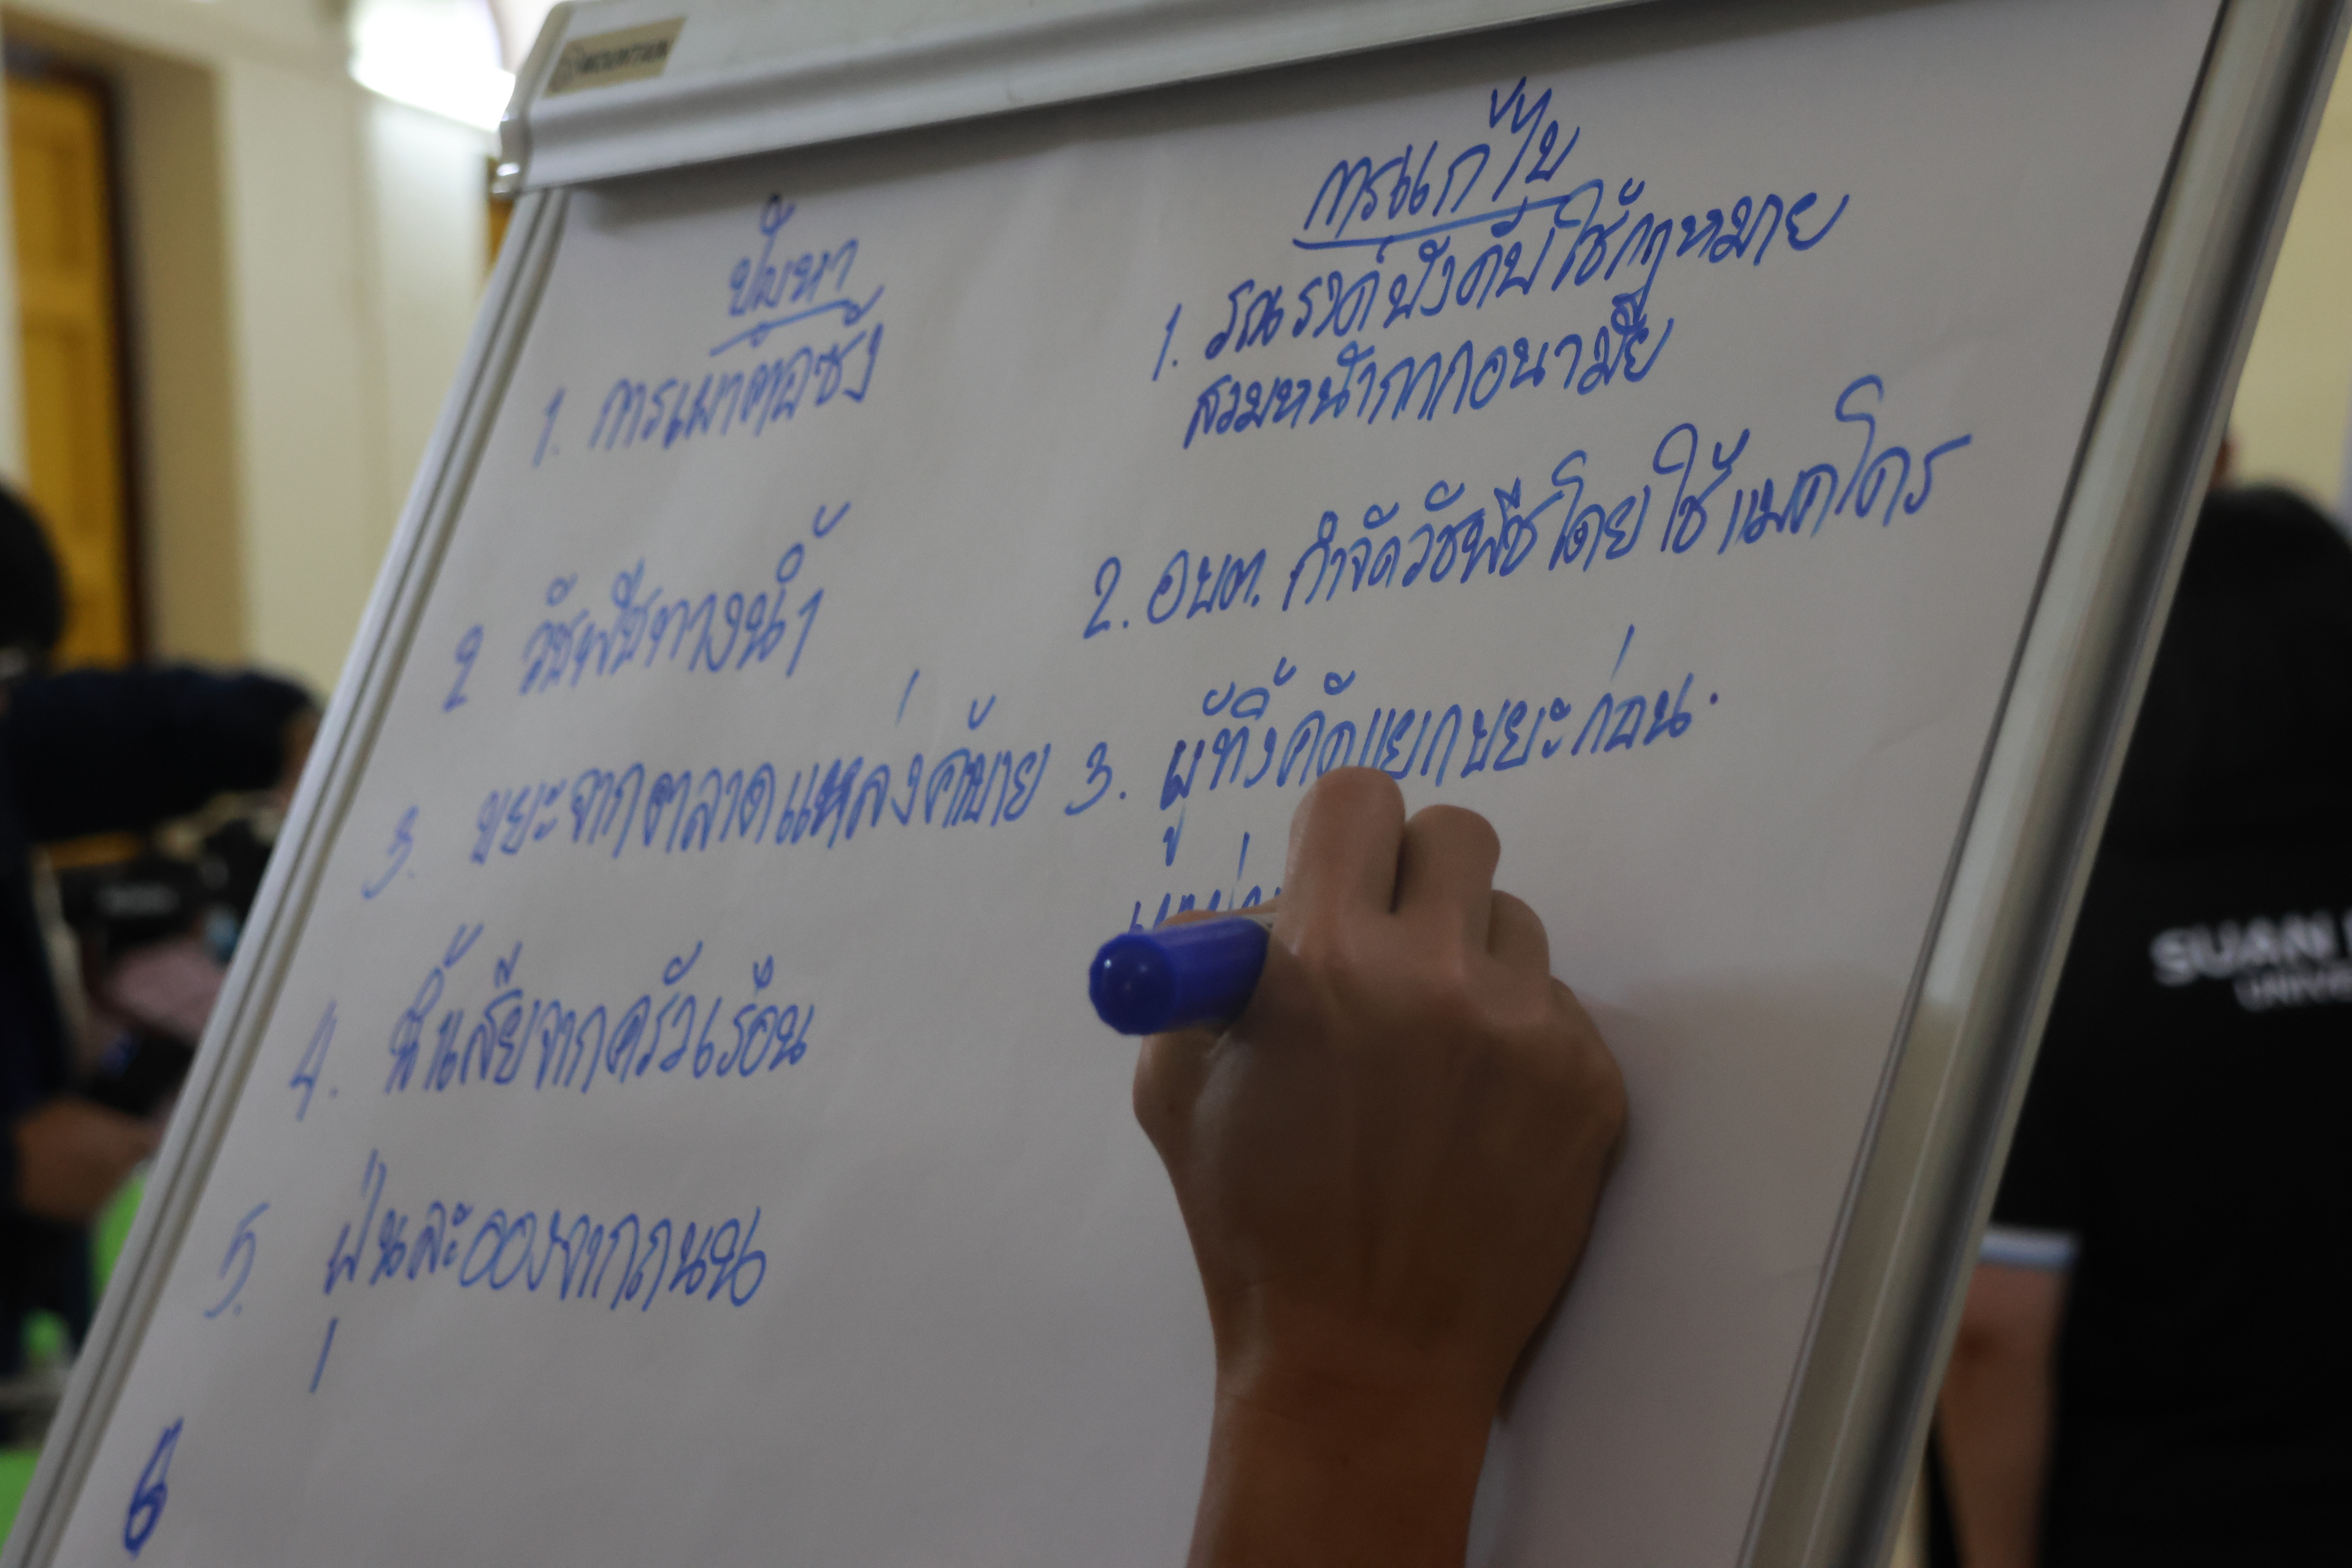 ปัญหา
1. การเผาตอซัง
2 วัชพืชทางน้ำ
3. ขยะจากตลาดแหล่งค้าขาย
4. น้ำเสียจากครัวเรือน
5. ฝุ่นละอองจากถนน
6
การแก้ไข
1. รณรงค์บังคับใช้กฎหมาย
สวมหน้ากากอนามัย
2. อบต. กำจัดวัชพืชโดยใช้แมคโคร
3. ผู้ทิ้งคัดแยกขยะก่อน.
SUAN